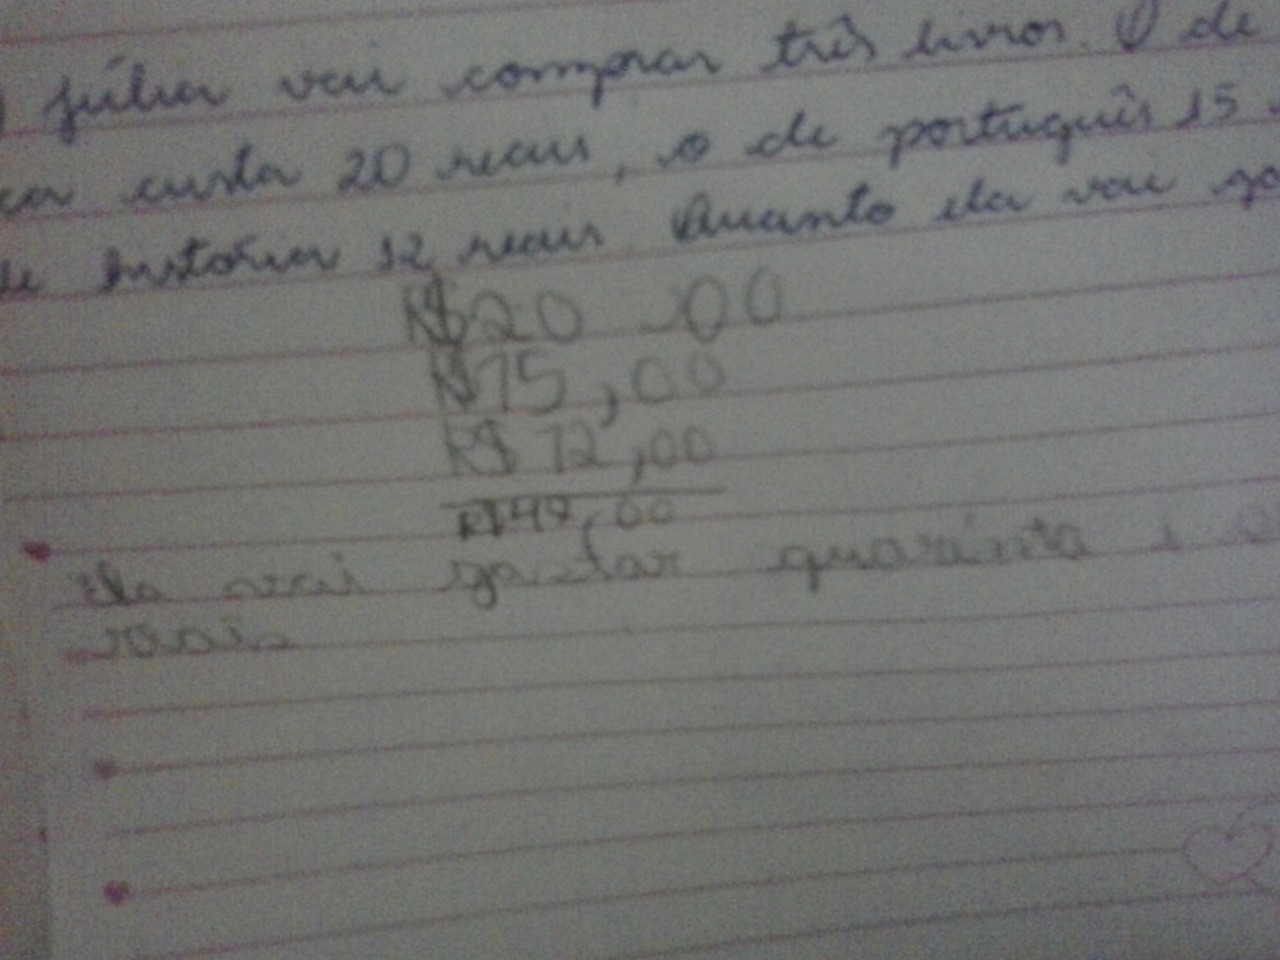 Júlia vai comprar três livros. O de
custa 20 reais, o de português 15
de história 12 reais. Quanto ela vai
R$20,00
R$15,00
R$ 12,00
R$47,00
Ela vai gastar quarinta i
reais